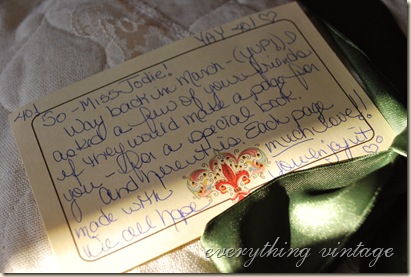 YAY - 40! ♡
40!
So - Miss Jodie!
Way back in March - (YUP!), I
asked a few of your friends
if they would make a page for
you - for a special book.
and here it is. Each page
made with much love!
We all hope you enjoy it ♡
everything vintage